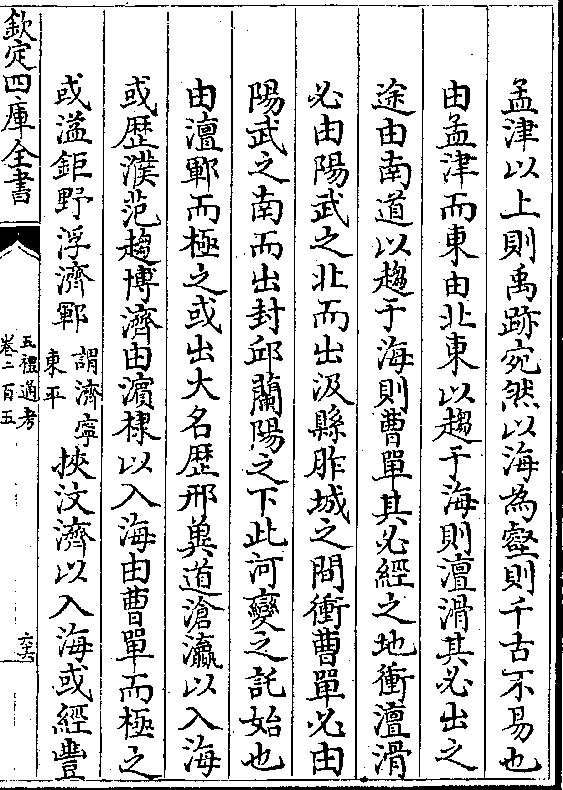 孟津以上則禹跡宛然以海為壑則千古不易也
由孟津而東由北東以趨于海則澶滑其必出之
途由南道以趨于海則曹單其必經之地衝澶滑
必由陽武之北而出汲縣胙城之間衝曹單必由
陽武之南而出封邱蘭陽之下此河變之託始也
由澶鄆而極之或出大名歷邢冀道滄瀛以入海
或歷濮范趨博濟由濱棣以入海由曹單而極之
或溢鉅野浮濟鄆謂濟寧東平挾汶濟以入海或經豐
欽定四庫全書
五禮通考
卷二百五